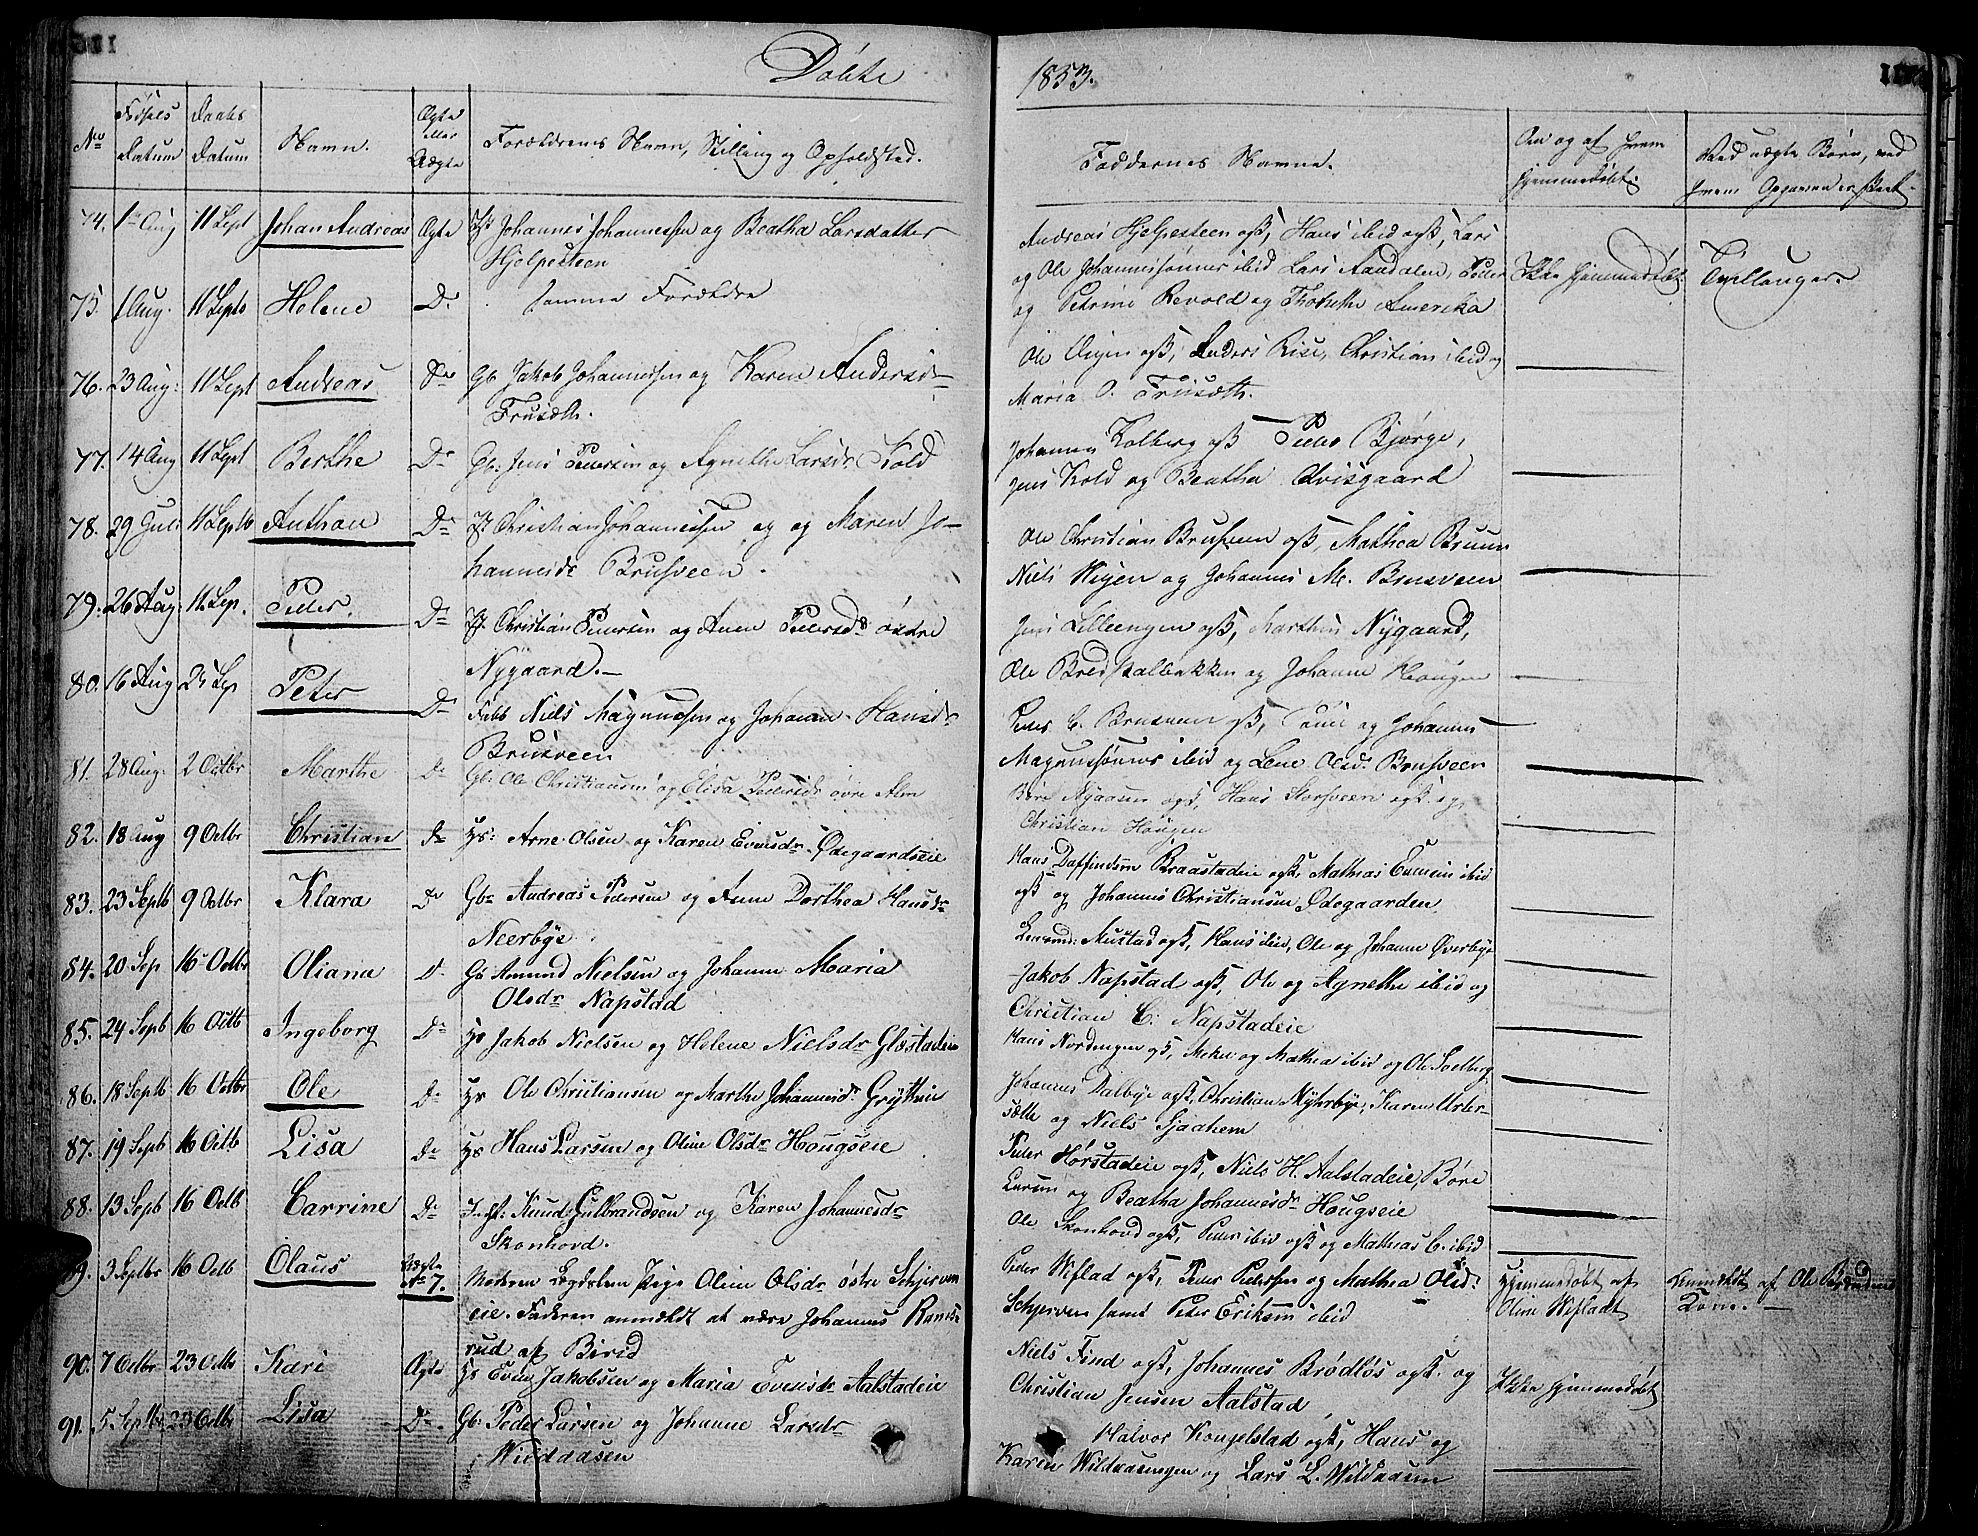 Döbte 1853.
No
Fødsels Datum
Daabs Datum
Navn.
Ægte eller Uægte
Forældrenes Navn, Stilling og Opholdsted.
Faddernes Navne.
Om og af hvem hjemmedøbt.
Ved uægte Børn, ved hvem Opgaven er skeet.
74. 1 Aug 11 Sept Johan Andreas Ægte Johannes Johannessen og Beatha Larsdatter
Hjelpesteen
Andreas Hjelpesteen gff, Hans ibid gff, Lars
og Ole Johannessønner ibid Lars Aandalen, Peder Ikke hjemmedøbt. Tvillinger.
75. 1 Aug. 11 Septb Helene Do samme Forældre
og Petrine Revold og Thorette Amerika
76. 23 Aug: 11 Sept Andreas Do Gb Jakob Johannessen og Karen Andersdr
Frusæth.
Ole Vigen gff, Anders Rise, Christian ibid og
Maria O. Frusæth.
77. 14 Aug 11 Sept Berthe Do Gb: Jens Petersen og Agnethe Larsdr Kold
Johannes Kolberg gff Peder Bjørge,
Jens Kold og Beatha Qvisgaard
78. 29 Juli 11 Septb Anthon Do Christian Johannessen og og Maren Jo-
hannesdr Brusveen.
Ole Christian Brusveen gff, Mathea Bruun
Niels Vigen og Johannes M. Brusveen
79. 26 Aug: 11. Sep. Peder. Do Christian Petersen og Anne Pedersdr østre
Nygaard.—
Jens Lilleengen gff, Marthin Nygaard,
Ole Bredstalbakken og Johanne Haugen
80. 16 Aug 25 Sep Peter Do Fabb Niels Magnussen og Johanne Hansdr
Brusveen
Peder C. Brusveen gff, og Johannes
Magnussønner ibid og Lene Olsdr Brusveen
81. 28 Aug. 2 Octbr Marthe Do Gb: Ole Christiansen og Elisa Pedersdr øvre Alm
Børe Nygaard gff, Hans Storsveen gff og
Christian Hougen
82. 18 Aug 9 Octbr Christian Do Hs: Arne Olsen og Karen Evensdr Ødegaardseie
Hans Daffindsen Braastadeie gff, Mathias Evensen ibid
gff og Johannes Christiansen Ødegaarden
83. 23 Septb 9 Octbr Klara Do Gbr Andreas Pedersen og Anne Dorthea Hansdr
Neerbye
Mustad gff, Hans ibid, Ole og Johanne Øverbye
84. 20 Sep 16 Octbr Oliana D. Gb Amund Nielsen og Johanne Maria
Olsdr Napstad
Jakob Napstad gff, Ole og Agnethe ibid og
Christian C: Napstadeie
85. 24 Septb 16 Octb Ingeborg Do Hs Jakob Nielsen og Helene Nielsdr Glæstadeie
Hans Nordengen gff, og Mathea ibid og Ole Soelberg
86. 18 Septb 16 Octbr Ole Do Hs Ole Christiansen og Marthe Johannesdr Gryttin
Johannes Dalbye gff, Christian Myhrbye, Karen Urter-
sætte og Niels Sjachem
87. 19 Septb 16 Octb Lisa Do Hs Hans Larsen og Oline Olsdr Hougseie
Peder Hørstadeie gff, Niels H. Aalstadeie, Børe
Larsen og Beatha Johannesdr Hougseie
88. 13 Septb 16 Octb Carrine Do Knud Gulbrandsen og Karen Johannesdr
Skonhovd.
Ole Skonhovd gff, Peder ibid gff og Mathias C. ibid
89. 3 Septbr 16 Octb Olaus Uægte No 7. Moderen Lægdslem Pige Oline Olsdr østre Schjerven
eie. Faderen anmeldt at være Johannes Rams-
rud af Birid
Peder Wiflad gff, Peder Pedersen og Mathea Olsdr
Schjerven samt Peter Eriksen ibid
Hjemmedøbt af Oline Wifladt
Anmeldt af Ole
90. 7 Octbr 23 Octbr Kari Ægte Hs Even Jakobsen og Maria Evensdr Aalstadeie
Niels Find gff, Johannes Brødløs gff. og
Christian Jensen Aalstad
Ikke hjemmedøbt
91. 5 Septbr 23 Octbr Lisa Do Gb: Peder Larsen og Johanne Larsdr
Wilddaasen
Halvor Kongelstad gff, Hans og
Karen Wildaasengen og Lars L. Wildaasen